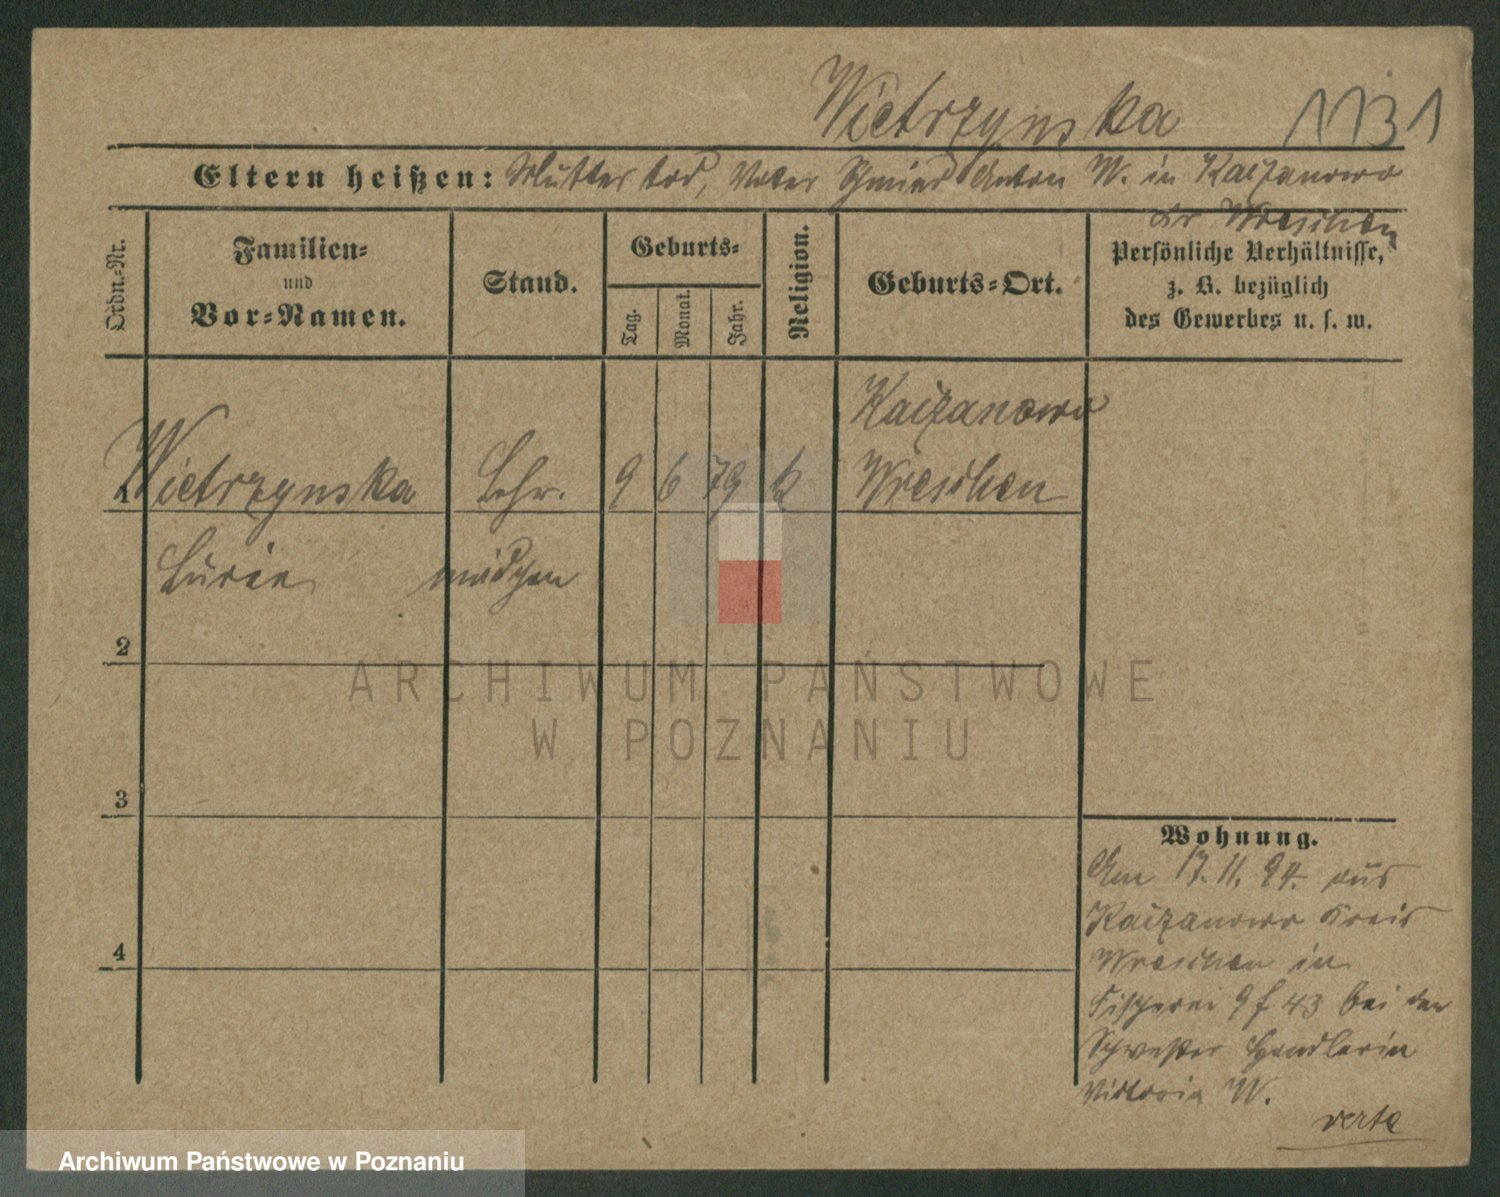 Wietrzynska 1131
Eltern heißen: Mutter tod, Vater Schmied Anton W. in Kaczanowo
Kr Wreschen
Ordn.-Nr.
Familien- und Vor-Namen.
Stand.
Geburts-
Tag.
Monat.
Jahr.
Religion.
Geburts-Ort.
Persönliche Verhältnisse,
z. B. bezüglich
des Gewerbes u. s. w.
Kaczanowo
1 Wietrzynska Lehr. 9 6 79 k Wreschen
mädchen
2
3
4
Wohnung.
Am 17. 11. 94. aus
Kaczanowo Kreis
Wreschen in
Fischerei 9 f 43 bei der
Schwester Handlerin
Victoria W.
verte
ARCHIWUM PAŃSTWOWE
W POZNANIU
Archiwum Państwowe w Poznaniu